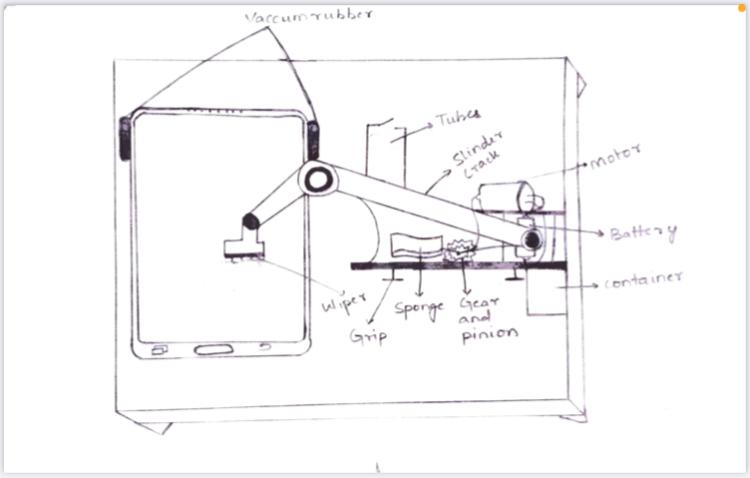 Vaccum rubber
Tubes
Slinder
crack
motor
Battery
container
Wiper
Sponge
Gear
and
pinion
Grip